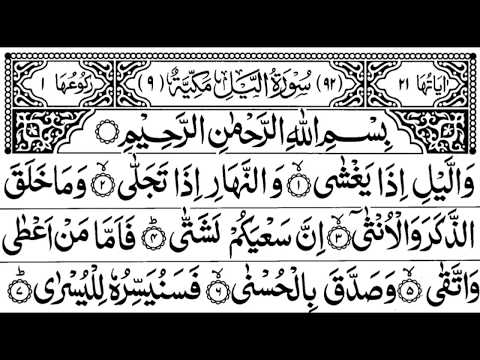 اٰيَاتُهَا ٢١ (٩٢) سُوْرَةُ الَّيْلِ مَكِّيَّةٌ (٩) رُكُوْعُهَا ١
بِسْمِ اللّٰهِ الرَّحْمٰنِ الرَّحِيْمِ
وَالَّيْلِ اِذَا يَغْشٰى ۙ‏ ﴿١﴾ وَالنَّهَارِ اِذَا تَجَلّٰى ۙ‏ ﴿٢﴾ وَمَا خَلَقَ
الذَّكَرَ وَالْاُنْثٰٓى ۙ‏ ﴿٣﴾ اِنَّ سَعْيَكُمْ لَشَتّٰى ؕ‏ ﴿٤﴾ فَاَمَّا مَنْ اَعْطٰى
وَاتَّقٰى ۙ‏ ﴿٥﴾ وَصَدَّقَ بِالْحُسْنٰى ۙ‏ ﴿٦﴾ فَسَنُيَسِّرُهٗ لِلْيُسْرٰى ؕ‏ ﴿٧﴾